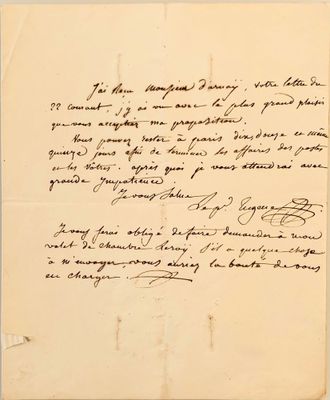 J'ai reçu Monsieur d'arnay, votre lettre du
22 courant, j'y ai vu avec le plus grand plaisir
que vous acceptiez ma proposition.
Vous pouvez rester à paris dix douze et même
quinze jours afin de terminer les affaires des postes
et les Vôtres. après quoi je vous attendrai avec
grande Impatience
Je vous Salue
Le pce. Eugene
Je vous Serai obligé de faire demander à mon
valet de chambre Leroy S'il a quelque chose
à m'envoyer, vous auriez la bonté de vous
en charger.